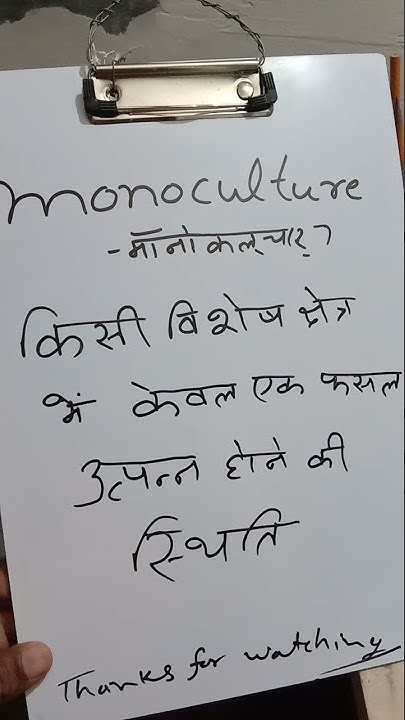 monoculture
- मॉनोकल्चर्
किसी विशेष क्षेत्र
में केवल एक फसल
उत्पन्न होने की
स्थिति
Thanks for watching